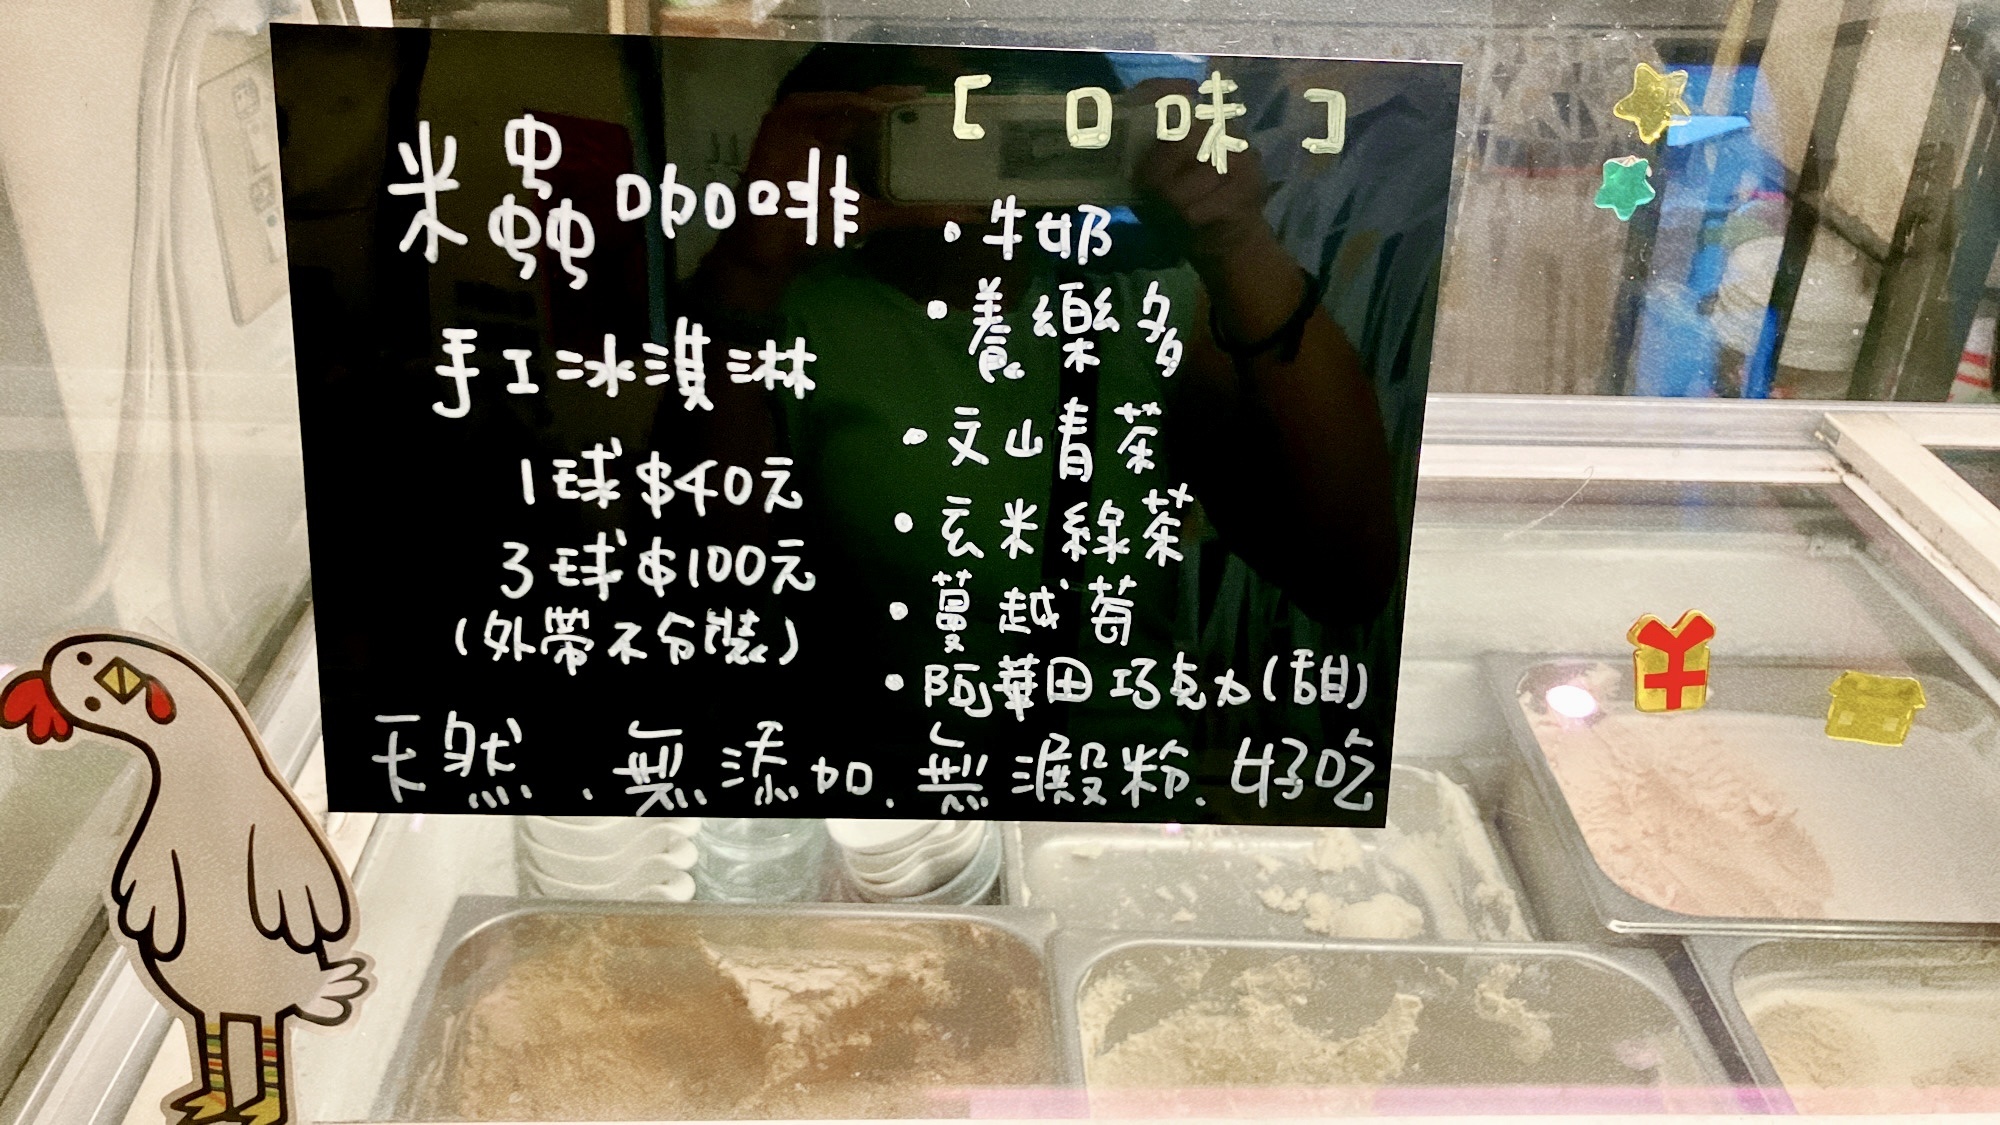 米蟲咖啡
手工冰淇淋
1球$40元
3球$100元
(外帶不分裝)
[口味]
•牛奶
•養樂多
•文山青茶
•玄米綠茶
•蔓越莓
•阿華田巧克力(甜)
天然.無添加.無澱粉.好吃